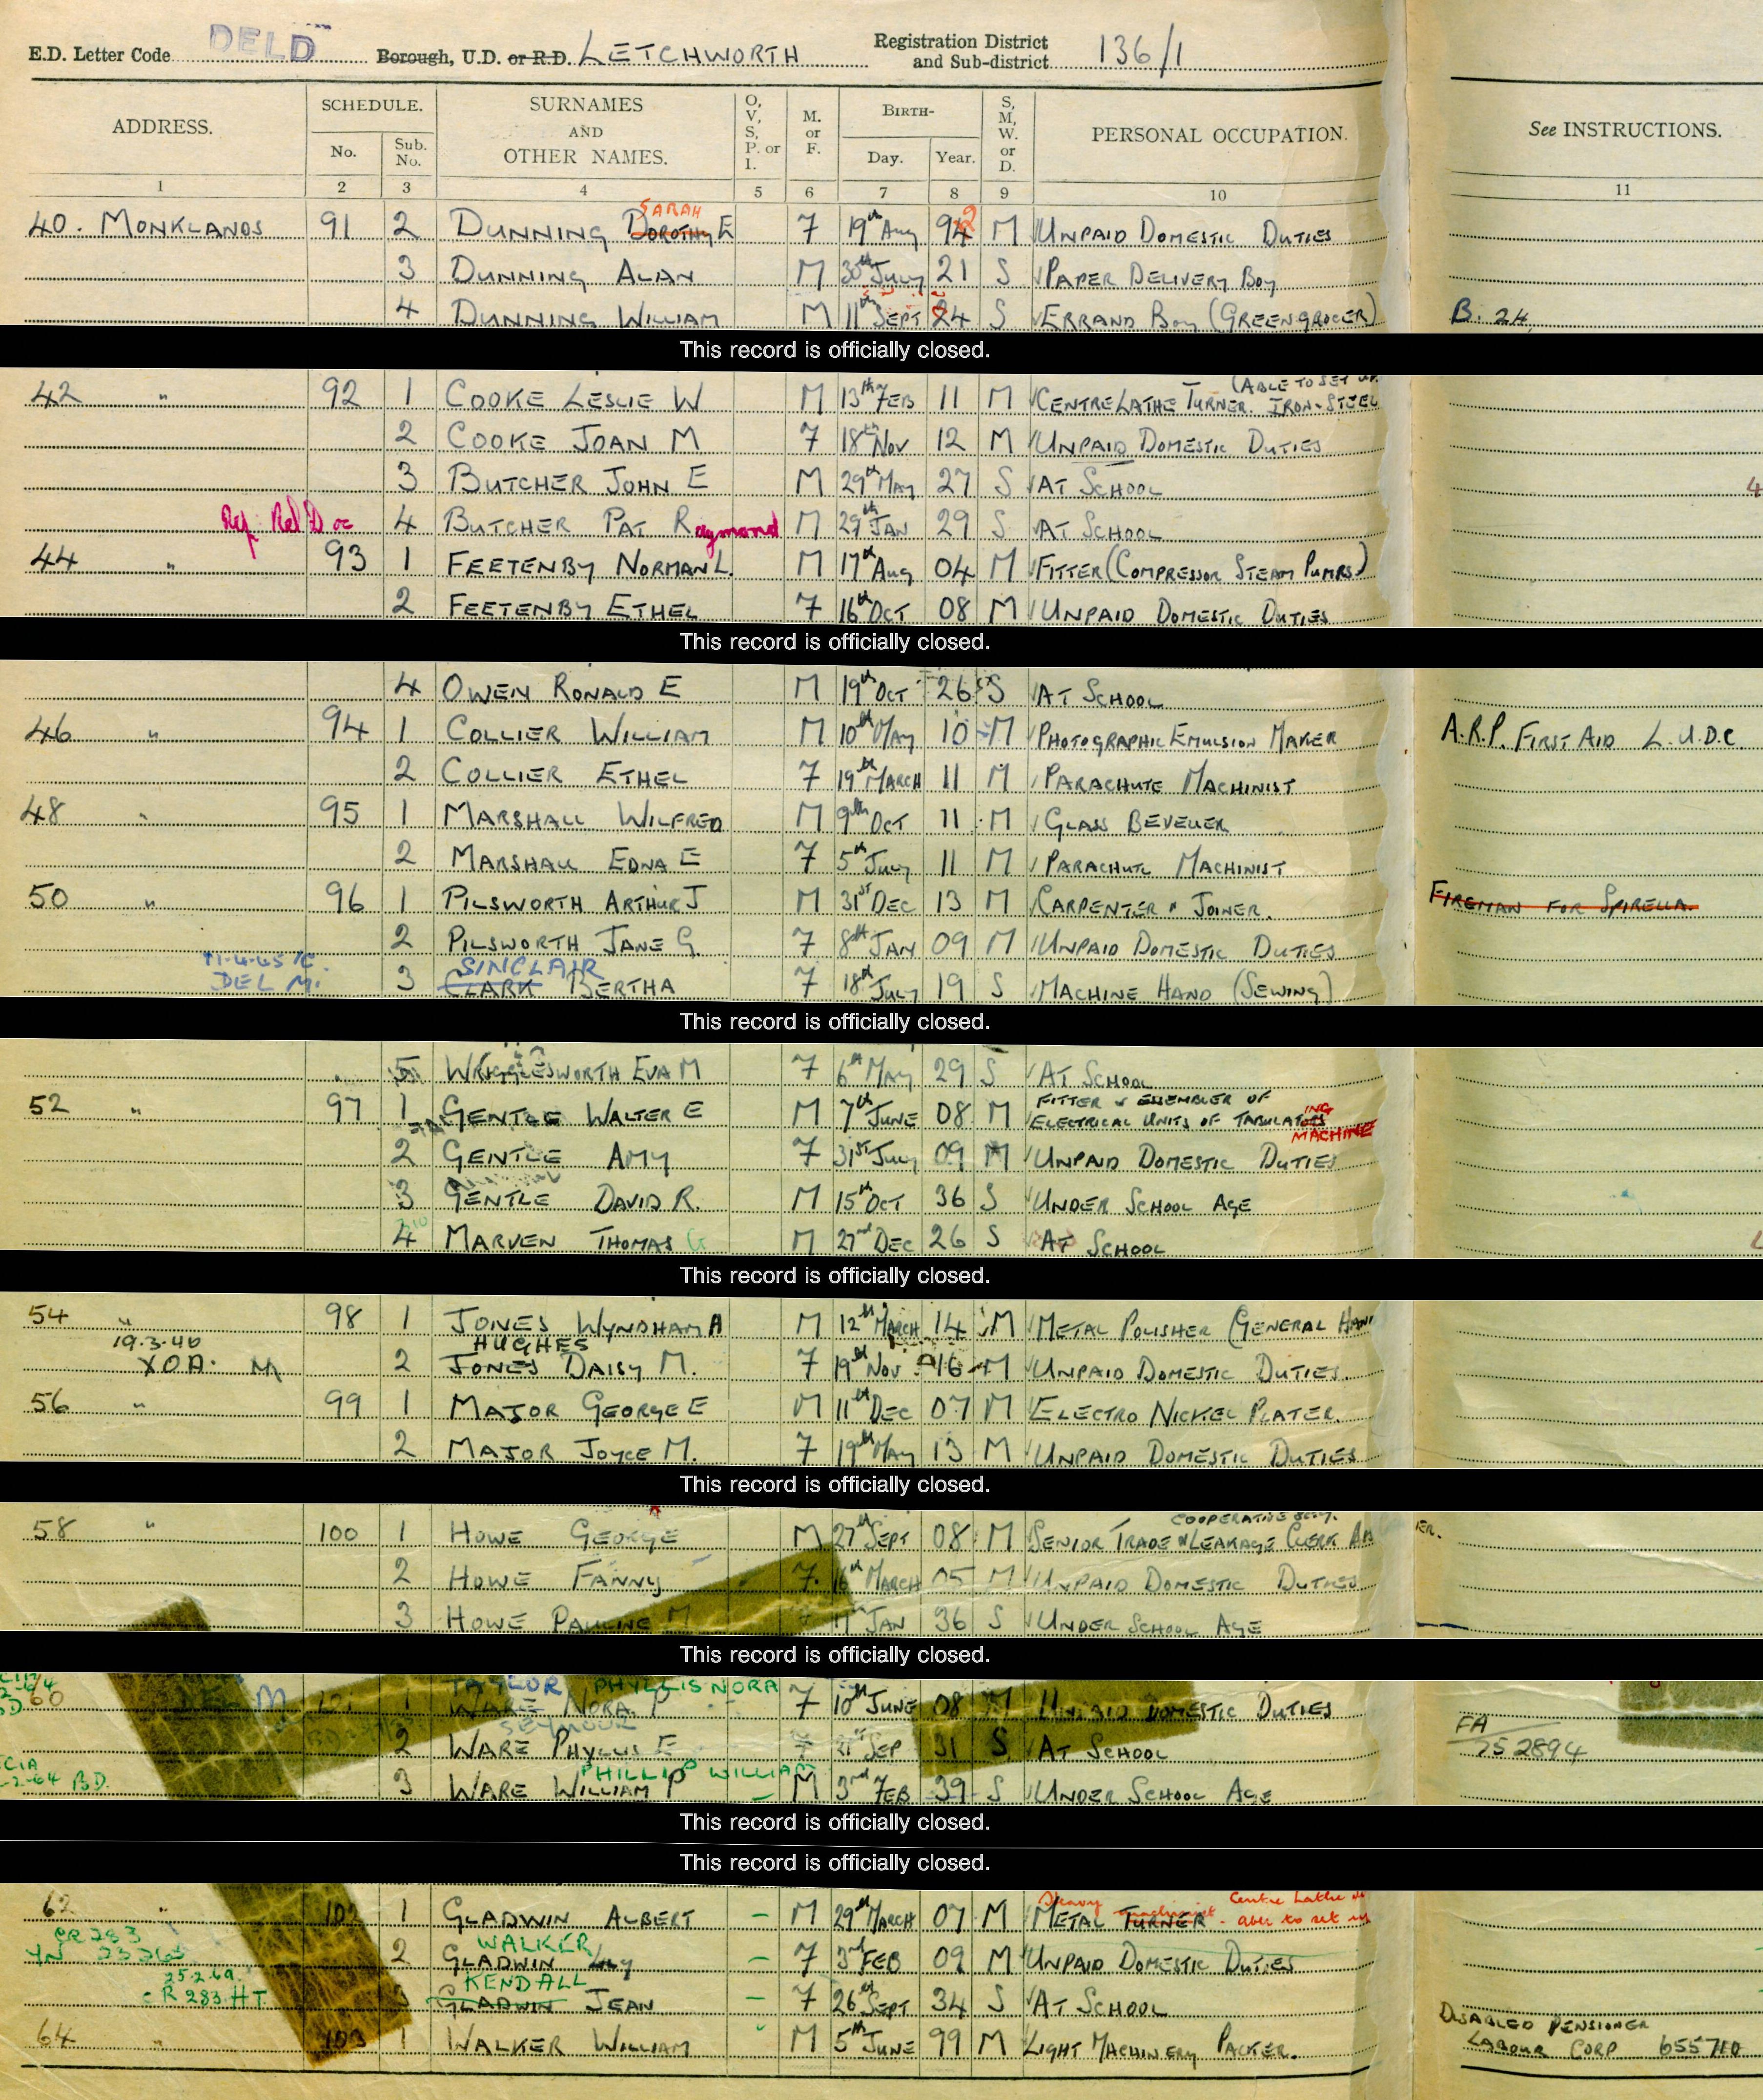 E.D. Letter Code DELD Borough, U.D. or R.D. LETCHWORTH Registration District and Sub-district 136/1
ADDRESS. SCHEDULE. No. Sub. No. SURNAMES AND OTHER NAMES. O, V, S, P. or I. M. or F. BIRTH- Day. Year. S, M, W. or D. PERSONAL OCCUPATION. See INSTRUCTIONS.
1 2 3 4 5 6 7 8 9 10 11
SARAH
40. MONKLANDS 91 2 DUNNING DOROTHY E F 19th Aug 94 2 M UNPAID DOMESTIC DUTIES
3 DUNNING ALAN M 30th July 21 S PAPER DELIVERY BOY
4 DUNNING WILLIAM M 11th SEPT 24 S ERRAND BOY (GREENGROCER) B. 24.
This record is officially closed.
(ABLE TO SET UP.
42 " 92 1 COOKE LESLIE W M 13th FEB 11 M CENTRE LATHE TURNER. IRON-STEEL
2 COOKE JOAN M F 18th Nov 12 M UNPAID DOMESTIC DUTIES
3 BUTCHER JOHN E M 29th May 27 S AT SCHOOL 4
4 BUTCHER PAT Raymond M 29th JAN 29 S AT SCHOOL
44 " 93 1 FEETENBY NORMAN L. M 17th Aug 04 M FITTER (COMPRESSOR STEAM PUMPS)
2 FEETENBY ETHEL F 16th OCT 08 M UNPAID DOMESTIC DUTIES
This record is officially closed.
4 OWEN RONALD E M 19th OCT 26 S AT SCHOOL
46 " 94 1 COLLIER WILLIAM M 10th MAY 10 M PHOTOGRAPHIC EMULSION MAKER A.R.P. FIRST AID L.U.D.C
2 COLLIER ETHEL F 19th MARCH 11 M PARACHUTE MACHINIST
48 " 95 1 MARSHALL WILFRED M 9th OCT 11 M GLASS BEVELLER
2 MARSHALL EDNA E F 5th July 11 M PARACHUTE MACHINIST
50 " 96 1 PILSWORTH ARTHUR J M 31st DEC 13 M CARPENTER & JOINER. FIREMAN FOR SPIRELLA.
2 PILSWORTH JANE G F 8th JAN 09 M UNPAID DOMESTIC DUTIES
11-4-45 SINCLAIR
DEL M. 3 CLARK BERTHA F 18th July 19 S MACHINE HAND (SEWING)
This record is officially closed.
5 WRIGGLESWORTH EVA M F 6th May 29 S AT SCHOOL
FITTER & ASSEMBLER OF
52 " 97 1 GENTLE WALTER E M 7th JUNE 08 M ELECTRICAL UNITS OF TABULATORS ING
MACHINE
2 GENTLE AMY F 31st July 09 M UNPAID DOMESTIC DUTIES
3 GENTLE DAVID R. M 15th OCT 36 S UNDER SCHOOL AGE
4 MARVEN THOMAS G M 27th DEC 26 S AT SCHOOL
This record is officially closed.
54 " 98 1 JONES WYNDHAM A M 12th MARCH 14 M METAL POLISHER (GENERAL HAN
19.3.40 HUGHES
X.O.A. M 2 JONES DAISY M. F 19th Nov 16 M UNPAID DOMESTIC DUTIES.
56 " 99 1 MAJOR GEORGE E M 11th DEC 07 M ELECTRO NICKEL PLATER.
2 MAJOR JOYCE M. F 19th May 13 M UNPAID DOMESTIC DUTIES
This record is officially closed.
COOPERATIVE
58 " 100 1 HOWE GEORGE M 27th SEPT 08 M SENIOR TRADE & LEAKAGE CLERK ER.
2 HOWE FANNY F 16th MARCH 05 M UNPAID DOMESTIC DUTIES
3 HOWE PAULINE M JAN 36 S UNDER SCHOOL AGE
This record is officially closed.
TAYLOR PHYLLIS NORA
60 101 1 WARE NORA. P F 10th JUNE 08 M UNPAID DOMESTIC DUTIES
SEYMOUR
2 WARE PHYLLIS E F 21st SEP 31 S AT SCHOOL FA 252894
PHILLIP WILLIAM
-2-64 B.D. 3 WARE WILLIAM P M 3rd FEB 39 S UNDER SCHOOL AGE
This record is officially closed.
This record is officially closed.
Heavy Centre Lathe
62 " 102 1 GLADWIN ALBERT M 29th MARCH 07 M METAL TURNER - able to set up
CR 283 WALKER
2 GLADWIN Lily F 3rd FEB 09 M UNPAID DOMESTIC DUTIES
25.2.60 KENDALL
CR 283 HT 3 GLADWIN JEAN F 26th SEPT 34 S AT SCHOOL
DISABLED PENSIONER
64 " 103 1 WALKER WILLIAM M 5th JUNE 99 M LIGHT MACHINERY PACKER. LABOUR CORP 655710